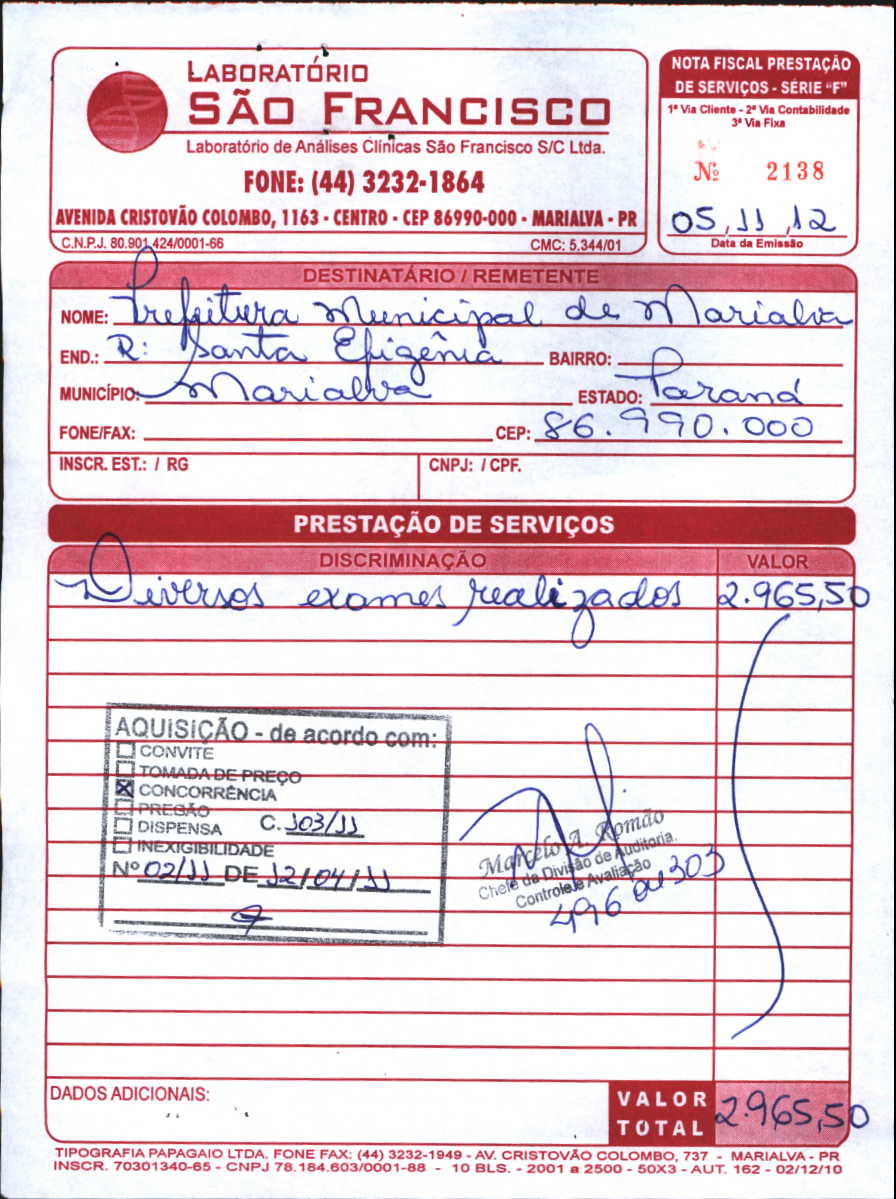 LABORATÓRIO
SÃO FRANCISCO
Laboratório de Análises Clínicas São Francisco S/C Ltda.
FONE: (44) 3232-1864
AVENIDA CRISTOVÃO COLOMBO, 1163 - CENTRO - CEP 86990-000 - MARIALVA - PR
C.N.P.J. 80.901.424/0001-66 CMC: 5.344/01
NOTA FISCAL PRESTAÇÃO
DE SERVIÇOS - SÉRIE "F"
1ª Via Cliente - 2ª Via Contabilidade
3ª Via Fixa
Nº 2138
05,11,12
Data da Emissão
DESTINATÁRIO / REMETENTE
NOME: Prefeitura Municipal de Marialva
END.: R: Santa Efigênia BAIRRO:
MUNICÍPIO: Marialva ESTADO: Paraná
FONE/FAX: CEP: 86.990.000
INSCR. EST.: / RG CNPJ: / CPF.
PRESTAÇÃO DE SERVIÇOS
DISCRIMINAÇÃO VALOR
Diversos exames realizados 2.965,50
AQUISIÇÃO - de acordo com:
CONVITE
TOMADA DE PREÇO
CONCORRÊNCIA
PREGÃO
DISPENSA C. 103/11
INEXIGIBILIDADE
Nº 02/11 DE 12/04/11
Marcelo A. Romão
Chefe da Divisão de Auditoria.
Controle e Avaliação
496 ou 303
DADOS ADICIONAIS:
VALOR
TOTAL 2.965,50
TIPOGRAFIA PAPAGAIO LTDA. FONE FAX: (44) 3232-1949 - AV. CRISTOVÃO COLOMBO, 737 - MARIALVA - PR
INSCR. 70301340-65 - CNPJ 78.184.603/0001-88 - 10 BLS. - 2001 a 2500 - 50X3 - AUT. 162 - 02/12/10